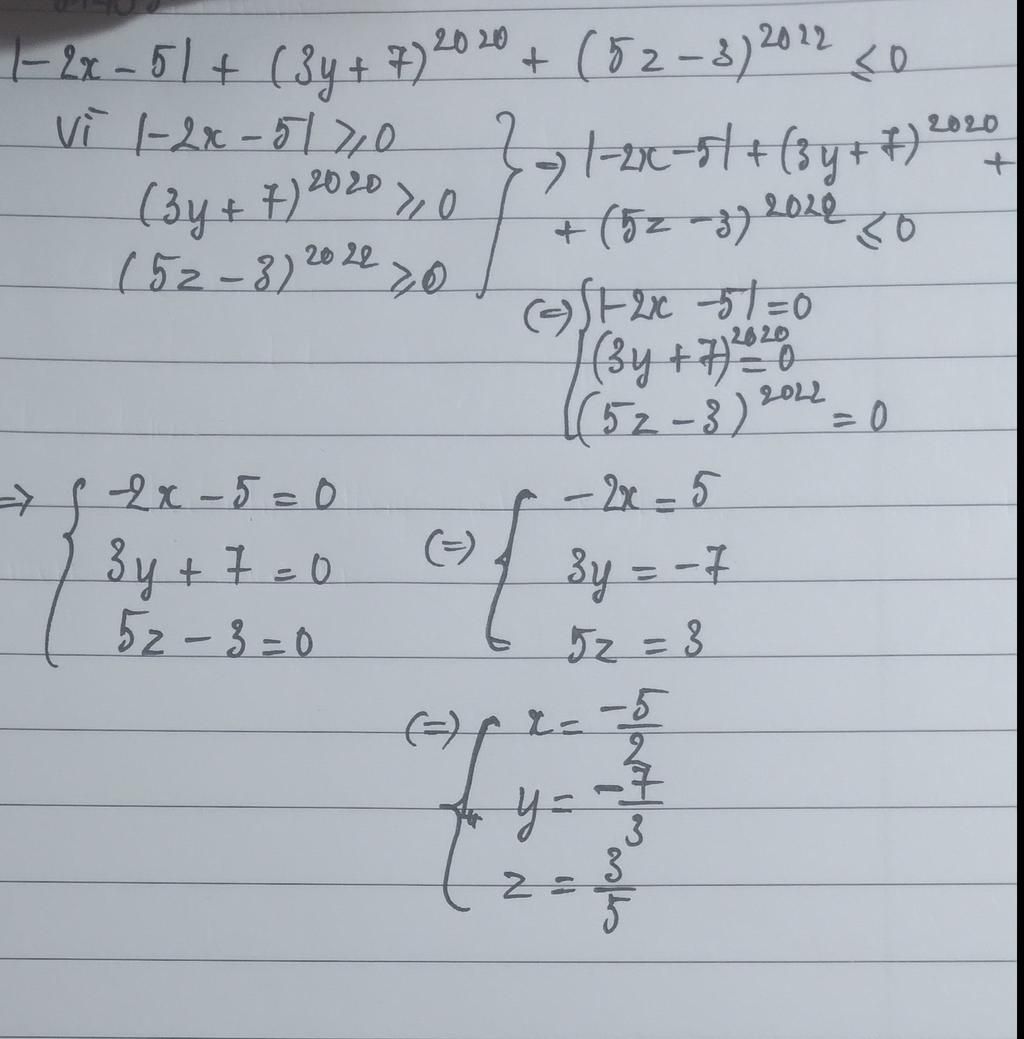 |-2x - 5| + (3y + 7)^2020 + (5z - 3)^2022 ≤ 0
Vì |-2x - 5| ≥ 0
(3y + 7)^2020 ≥ 0
(5z - 3)^2022 ≥ 0
} => |-2x - 5| + (3y + 7)^2020 +
+ (5z - 3)^2022 ≤ 0
(=) { |-2x - 5| = 0
(3y + 7)^2020 = 0
(5z - 3)^2022 = 0
=> { -2x - 5 = 0 (=) { -2x = 5
3y + 7 = 0 3y = -7
5z - 3 = 0 5z = 3
(=) { x = -5/2
y = -7/3
z = 3/5